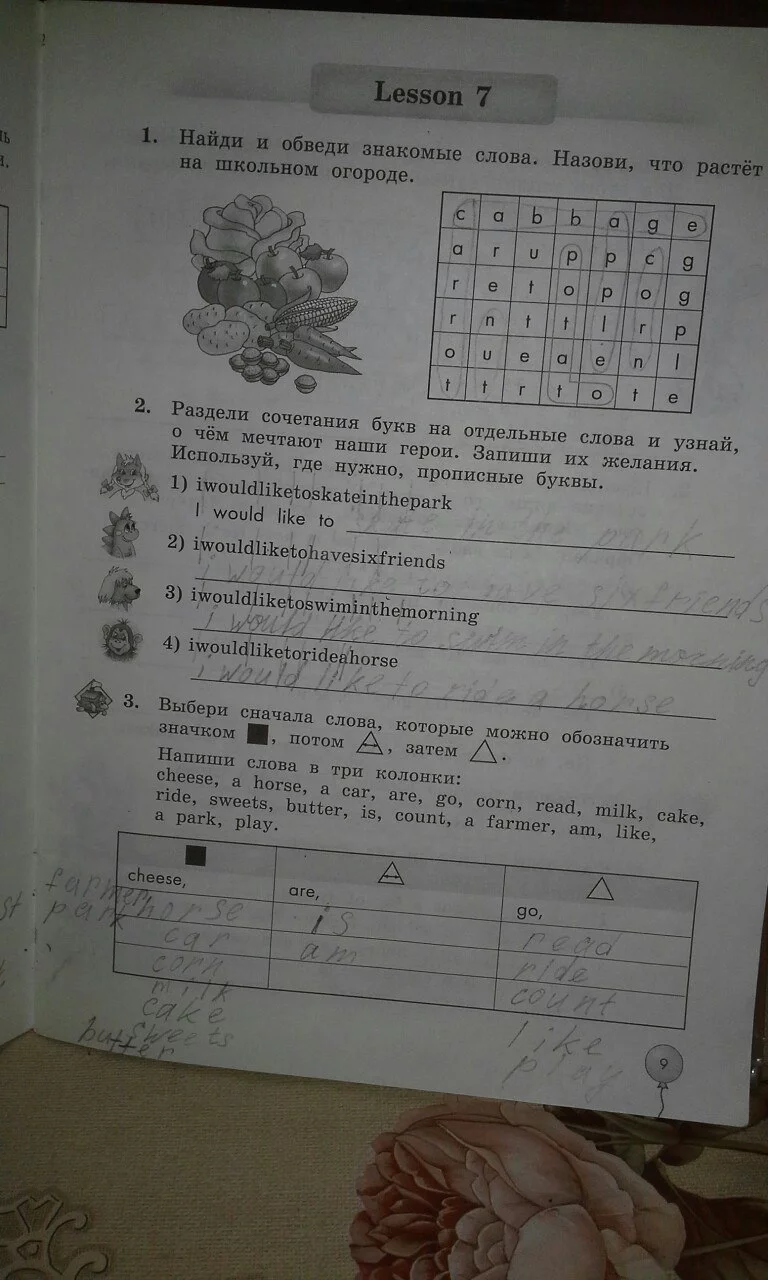 Lesson 7
1. Найди и обведи знакомые слова. Назови, что растёт
на школьном огороде.
c a b b a g e
a r u p p c g
r e t o p o g
r n t t l r p
o u e a e n l
t t r t o t e
2. Раздели сочетания букв на отдельные слова и узнай,
о чём мечтают наши герои. Запиши их желания.
Используй, где нужно, прописные буквы.
1) iwouldliketoskateinthepark
I would like to skate in the park
2) iwouldliketohavesixfriends
i would like to have six friends
3) iwouldliketoswiminthemorning
i would like to swim in the morning
4) iwouldliketorideahorse
i would like to ride a horse
3. Выбери сначала слова, которые можно обозначить
значком , потом , затем .
Напиши слова в три колонки:
cheese, a horse, a car, are, go, corn, read, milk, cake,
ride, sweets, butter, is, count, a farmer, am, like,
a park, play.
cheese, are, go,
farmer,
park horse is read
car am ride
corn count
milk
cake like
sweets play
butter
9